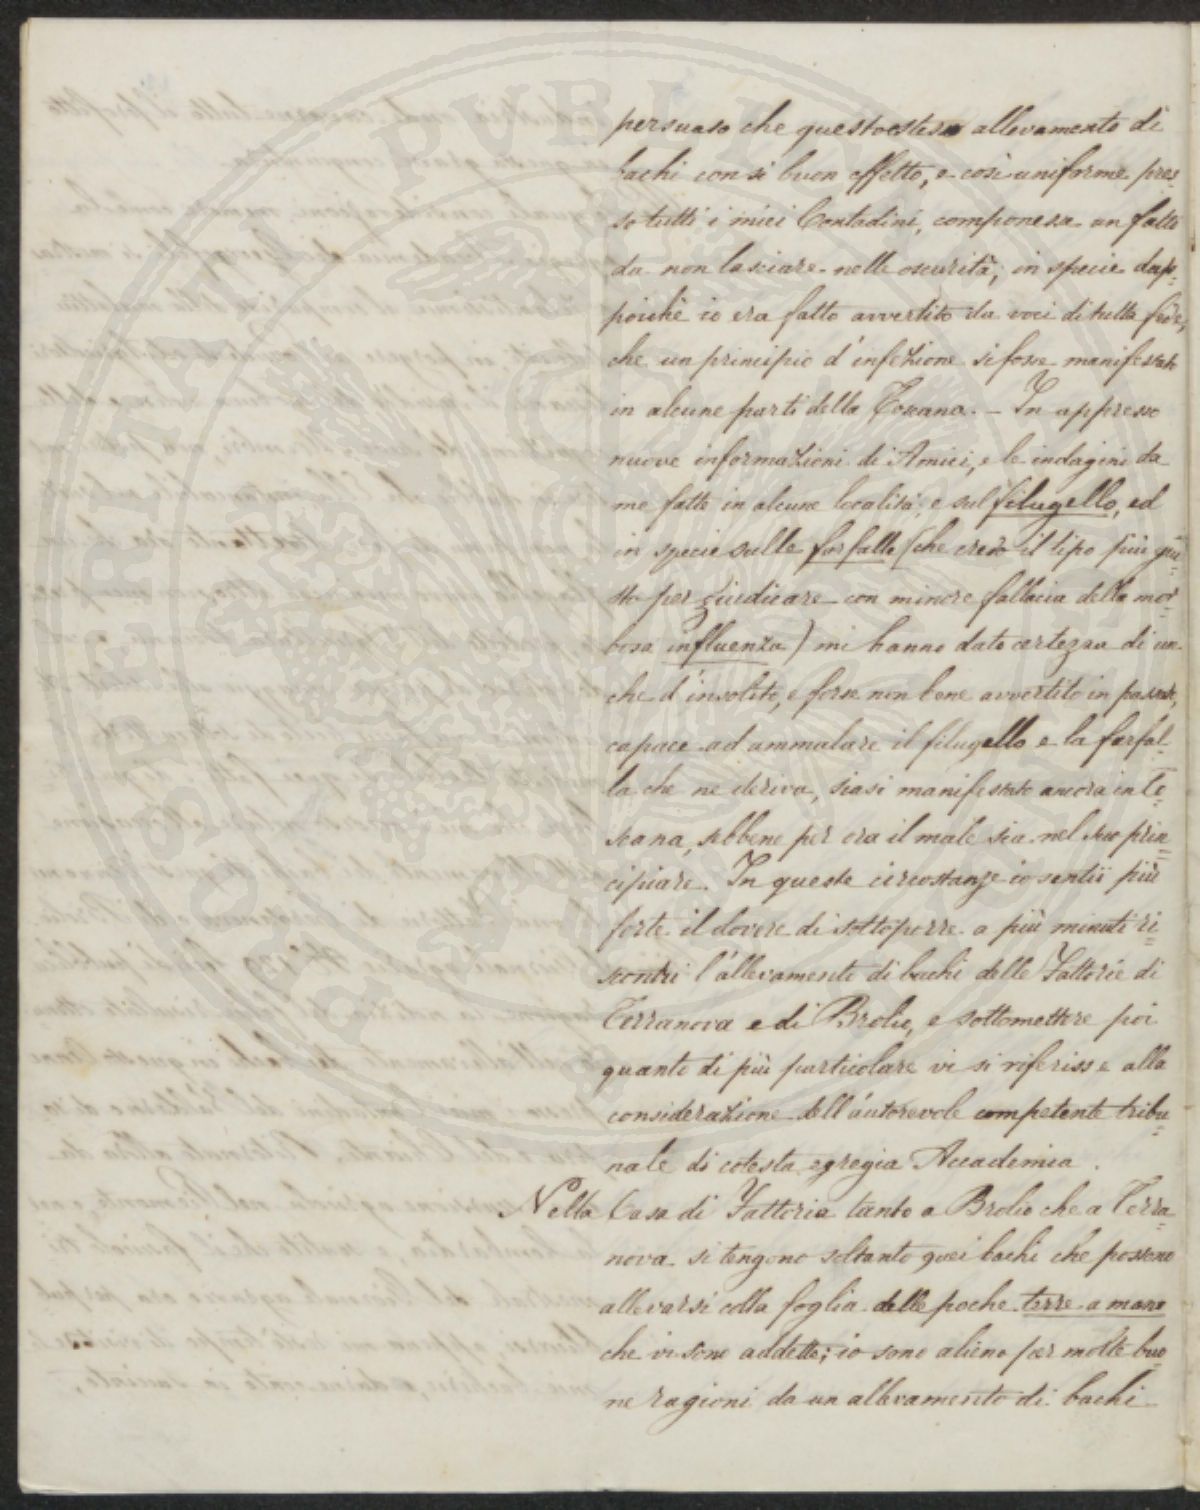 persuaso che questo esteso allevamento di
bachi con sì buon effetto, e così uniforme pres=
so tutti i miei Contadini, componesse un fatto
da non lasciare nelle oscurità; in specie dap=
poichè io era fatto avvertito da voci di tutta fede,
che un principio d'infezione si fosse manifestato
in alcune parti della Toscana. – In appresso
nuove informazioni di Amici, e le indagini da
me fatte in alcune località, e sul filugello, ed
in specie sulle farfalle (che credo il tipo più giu=
sto per giudicare con minore fallacia della mor=
bosa influenza) mi hanno dato certezza di un
che d'insolito, e forse non bene avvertito in passato,
capace ad ammalare il filugello e la farfal=
la che ne deriva, siasi manifestato ancora in To=
scana, sebbene per ora il male sia nel suo prin=
cipiare. In queste circostanze io sentii più
forte il dovere di sottoporre a più minuti ri=
scontri l'allevamento di bachi delle Fattorie di
Terranova e di Brolio, e sottomettere poi
quanto di più particolare vi si riferisse alla
considerazione dell'autorevole competente tribu=
nale di cotesta egregia Accademia.
Nella Casa di Fattoria tanto a Brolio che a Terra=
nova si tengono soltanto quei bachi che possono
allevarsi colla foglia delle poche terre a mano
che vi sono addette; io sono alieno per molte buo=
ne ragioni da un allevamento di bachi